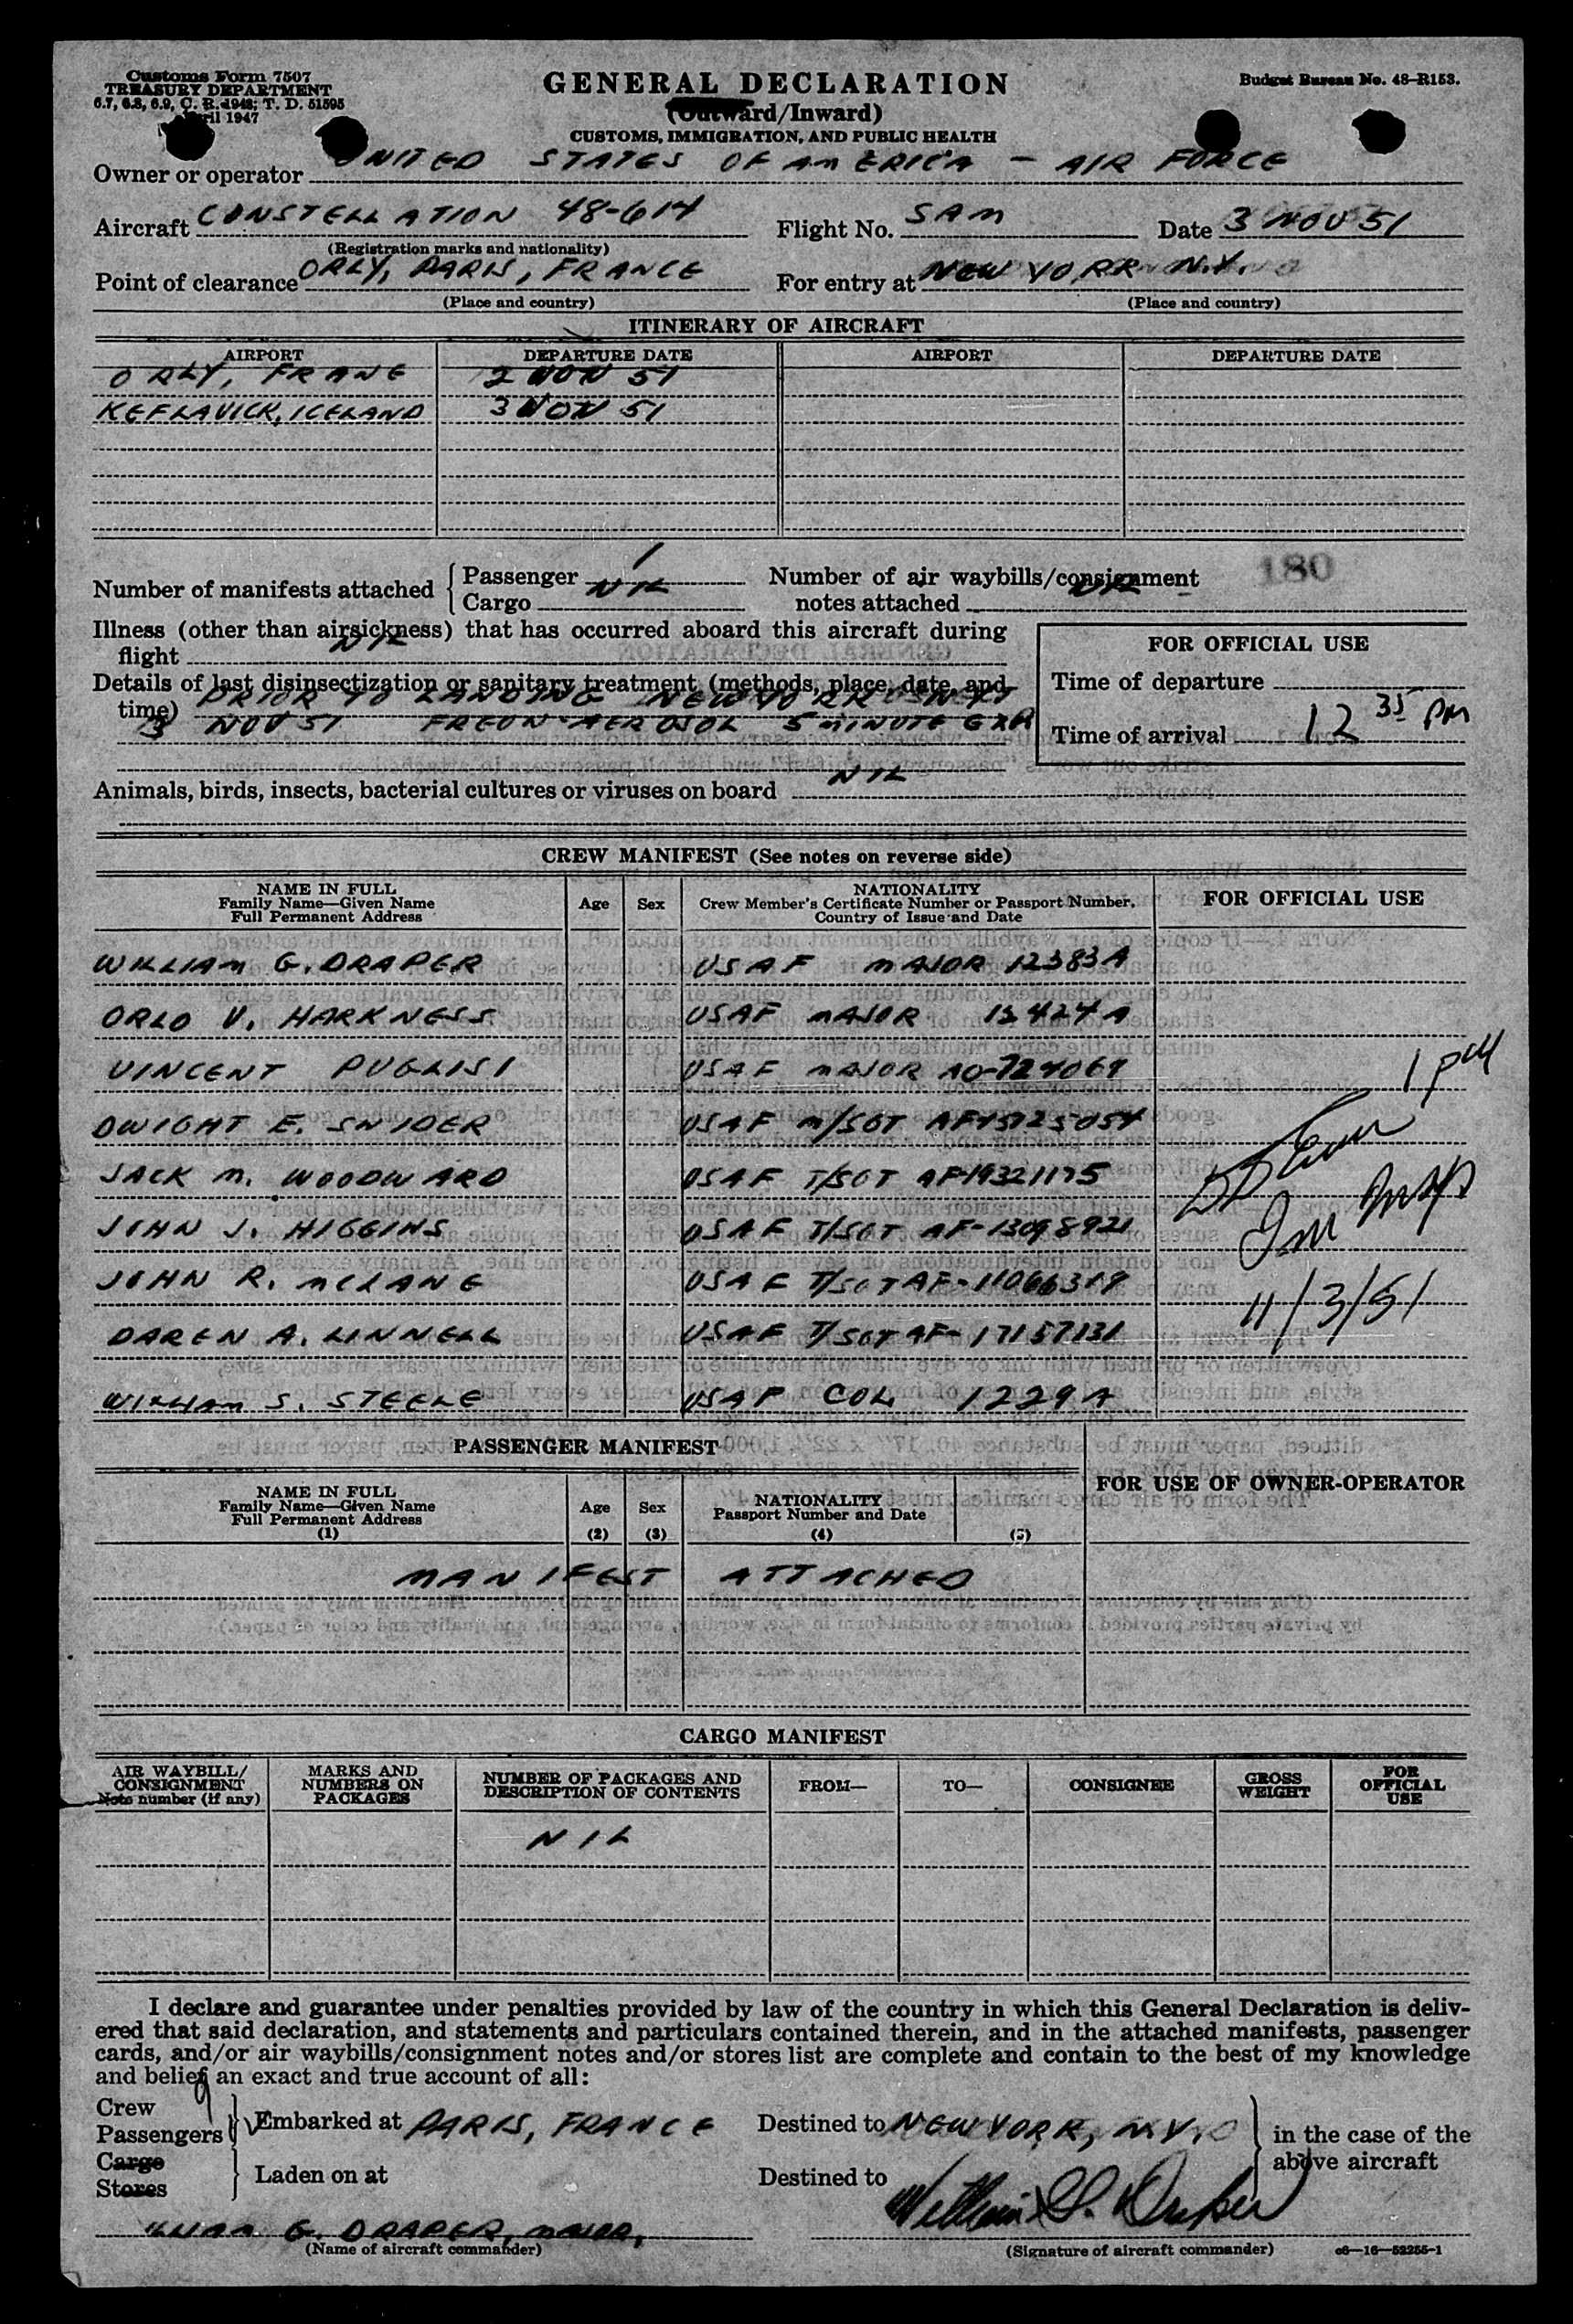 Customs Form 7507
TREASURY DEPARTMENT
6.7, 6.8, 6.9, C. R. 1943; T. D. 51595
April 1947
GENERAL DECLARATION
(Outward/Inward)
CUSTOMS, IMMIGRATION, AND PUBLIC HEALTH
Budget Bureau No. 48–R153.
Owner or operator UNITED STATES OF AMERICA – AIR FORCE
Aircraft CONSTELLATION 48-614 Flight No. SAM Date 3 NOV 51
(Registration marks and nationality)
Point of clearance ORLY, PARIS, FRANCE For entry at NEW YORK N.Y.
(Place and country) (Place and country)
ITINERARY OF AIRCRAFT
AIRPORT DEPARTURE DATE AIRPORT DEPARTURE DATE
ORLY, FRANE 2 NOV 51
KEFLAVICK, ICELAND 3 NOV 51
Number of manifests attached Passenger 1 Number of air waybills/consignment 180
Cargo NIL notes attached NIL
Illness (other than airsickness) that has occurred aboard this aircraft during
flight NIL
FOR OFFICIAL USE
Details of last disinsectization or sanitary treatment (methods, place, date, and
time) PRIOR TO LANDING NEW YORK
3 NOV 51 FREON AEROSOL 5 MINUTE EXP
Time of departure
Time of arrival 12 35 PM
Animals, birds, insects, bacterial cultures or viruses on board NIL
CREW MANIFEST (See notes on reverse side)
NAME IN FULL
Family Name—Given Name
Full Permanent Address
Age Sex
NATIONALITY
Crew Member's Certificate Number or Passport Number,
Country of Issue and Date
FOR OFFICIAL USE
WILLIAM G. DRAPER USAF MAJOR 12383A
ORLO V. HARKNESS USAF MAJOR 13424A
VINCENT PUGLISI USAF MAJOR AO-724069
1 PM
DWIGHT E. SNIDER USAF M/SGT AF15725054
JACK M. WOODWARD USAF T/SGT AF-19321175
JOHN J. HIGGINS USAF T/SGT AF-13098921
JOHN R. McLANE USAF T/SGT AF-11066319
11/3/51
DAREN A. LINNELL USAF T/SGT AF-17157131
WILLIAM S. STEELE USAF COL 1229A
PASSENGER MANIFEST
FOR USE OF OWNER-OPERATOR
NAME IN FULL
Family Name—Given Name
Full Permanent Address
(1)
Age
(2)
Sex
(3)
NATIONALITY
Passport Number and Date
(4) (5)
MANIFEST ATTACHED
CARGO MANIFEST
AIR WAYBILL/
CONSIGNMENT
Note number (if any)
MARKS AND
NUMBERS ON
PACKAGES
NUMBER OF PACKAGES AND
DESCRIPTION OF CONTENTS
FROM—
TO—
CONSIGNEE
GROSS
WEIGHT
FOR
OFFICIAL
USE
NIL
I declare and guarantee under penalties provided by law of the country in which this General Declaration is deliv-
ered that said declaration, and statements and particulars contained therein, and in the attached manifests, passenger
cards, and/or air waybills/consignment notes and/or stores list are complete and contain to the best of my knowledge
and belief an exact and true account of all:
Crew 9
Passengers Embarked at PARIS, FRANCE Destined to NEW YORK, N.Y. in the case of the
above aircraft
Cargo
Stores Laden on at Destined to
William G. Draper
WILLIAM G. DRAPER, MAJOR,
(Name of aircraft commander) (Signature of aircraft commander) c6—16—52255-1